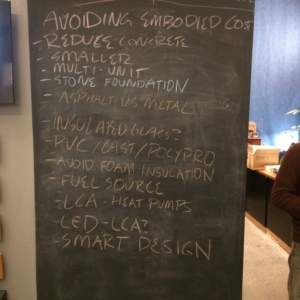 AVOIDING EMBODIED COST
- REDUCE CONCRETE
- SMALLER
- MULTI-UNIT
- STONE FOUNDATION
- ASPHALT VS. METAL
- INSULATED GLASS?
- PVC/CAST/POLYPRO
- AVOID FOAM INSULATION
- FUEL SOURCE
- LCA - HEAT PUMPS
- LED - LCA?
- SMART DESIGN